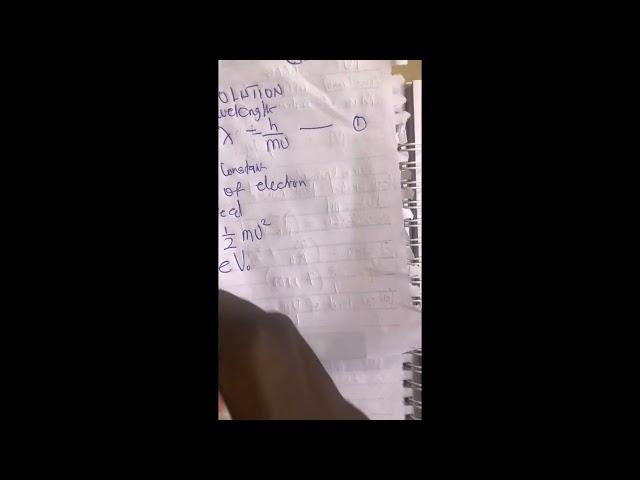 OLUTION
velength
λ = h/mv —— ①
Constant
of electron
eed
1/2 mv²
eV₀